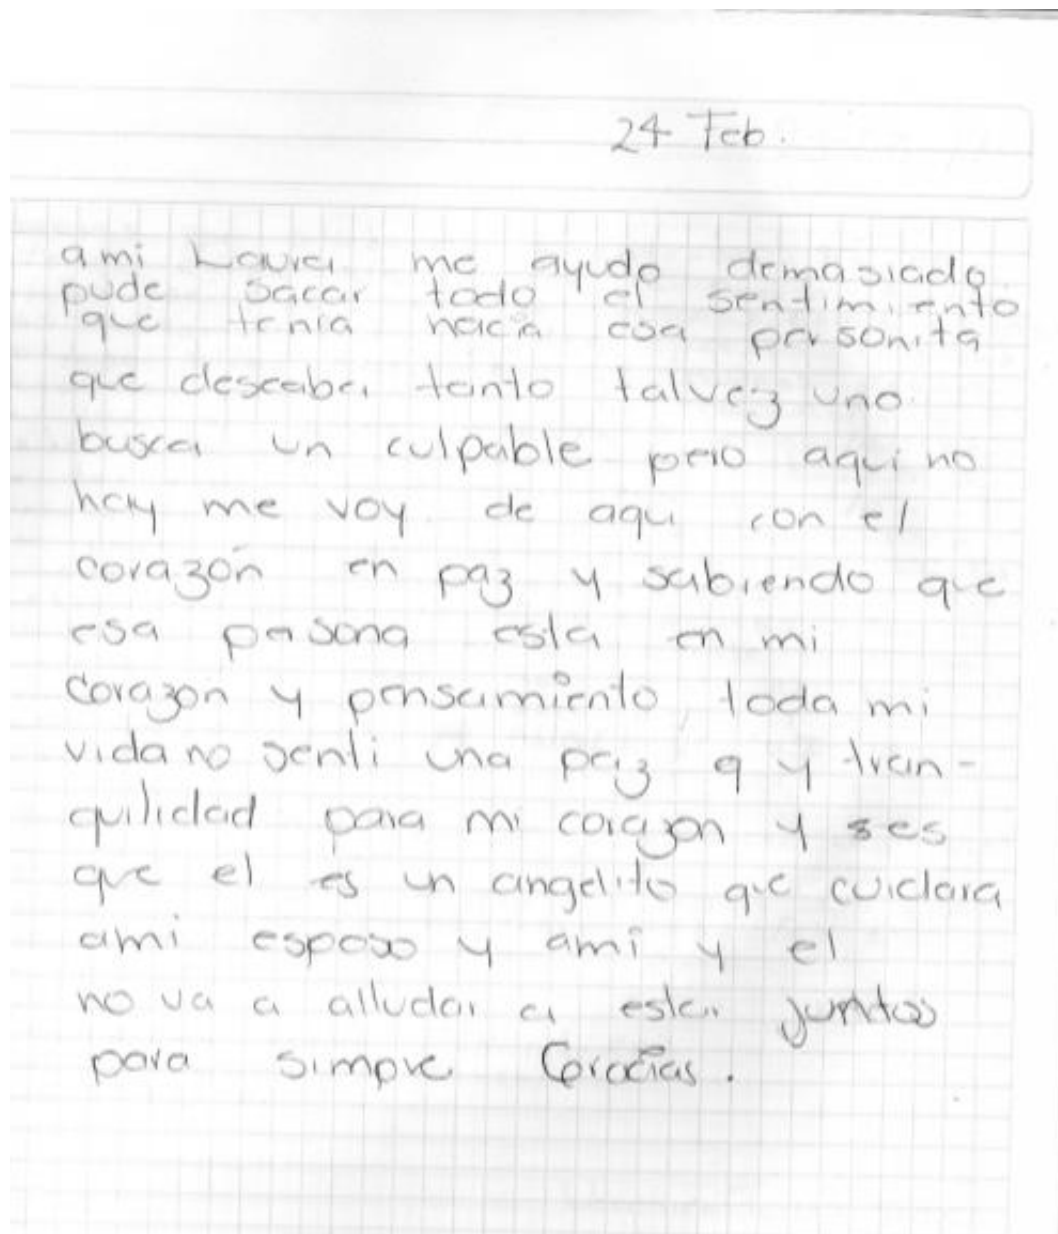 24 Feb.
ami Laura me ayudo demasiado
pude sacar todo el sentimiento
que tenia hacia esa personita
que deseaba tanto talvez uno
busca un culpable pero aqui no
hay me voy de aqui con el
corazón en paz y sabiendo que
esa pesona esta en mi
corazon y pensamiento toda mi
vida no senti una paz q y tran-
quilidad para mi corazon y ses
que el es un angelito que cuidara
ami esposo y ami y el
no va a alludar a estar juntos
para simpre Gracias.